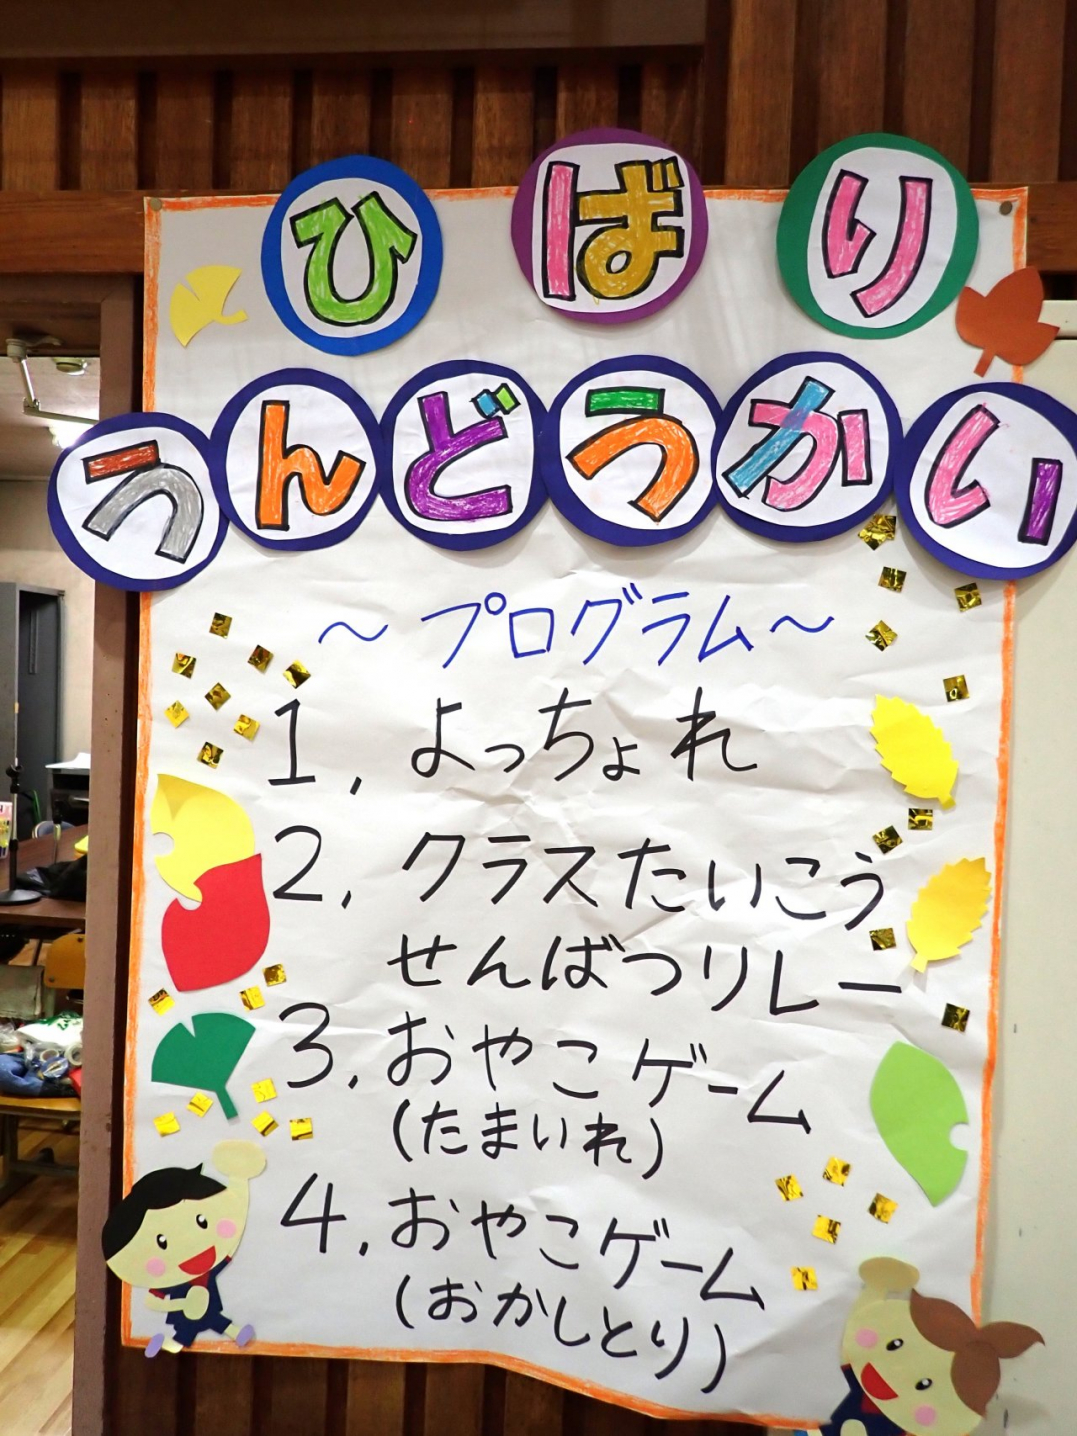 ひばり
うんどうかい
～プログラム～
1, よっちょれ
2, クラスたいこう
せんばつリレー
3, おやこゲーム
(たまいれ)
4, おやこゲーム
(おかしとり)